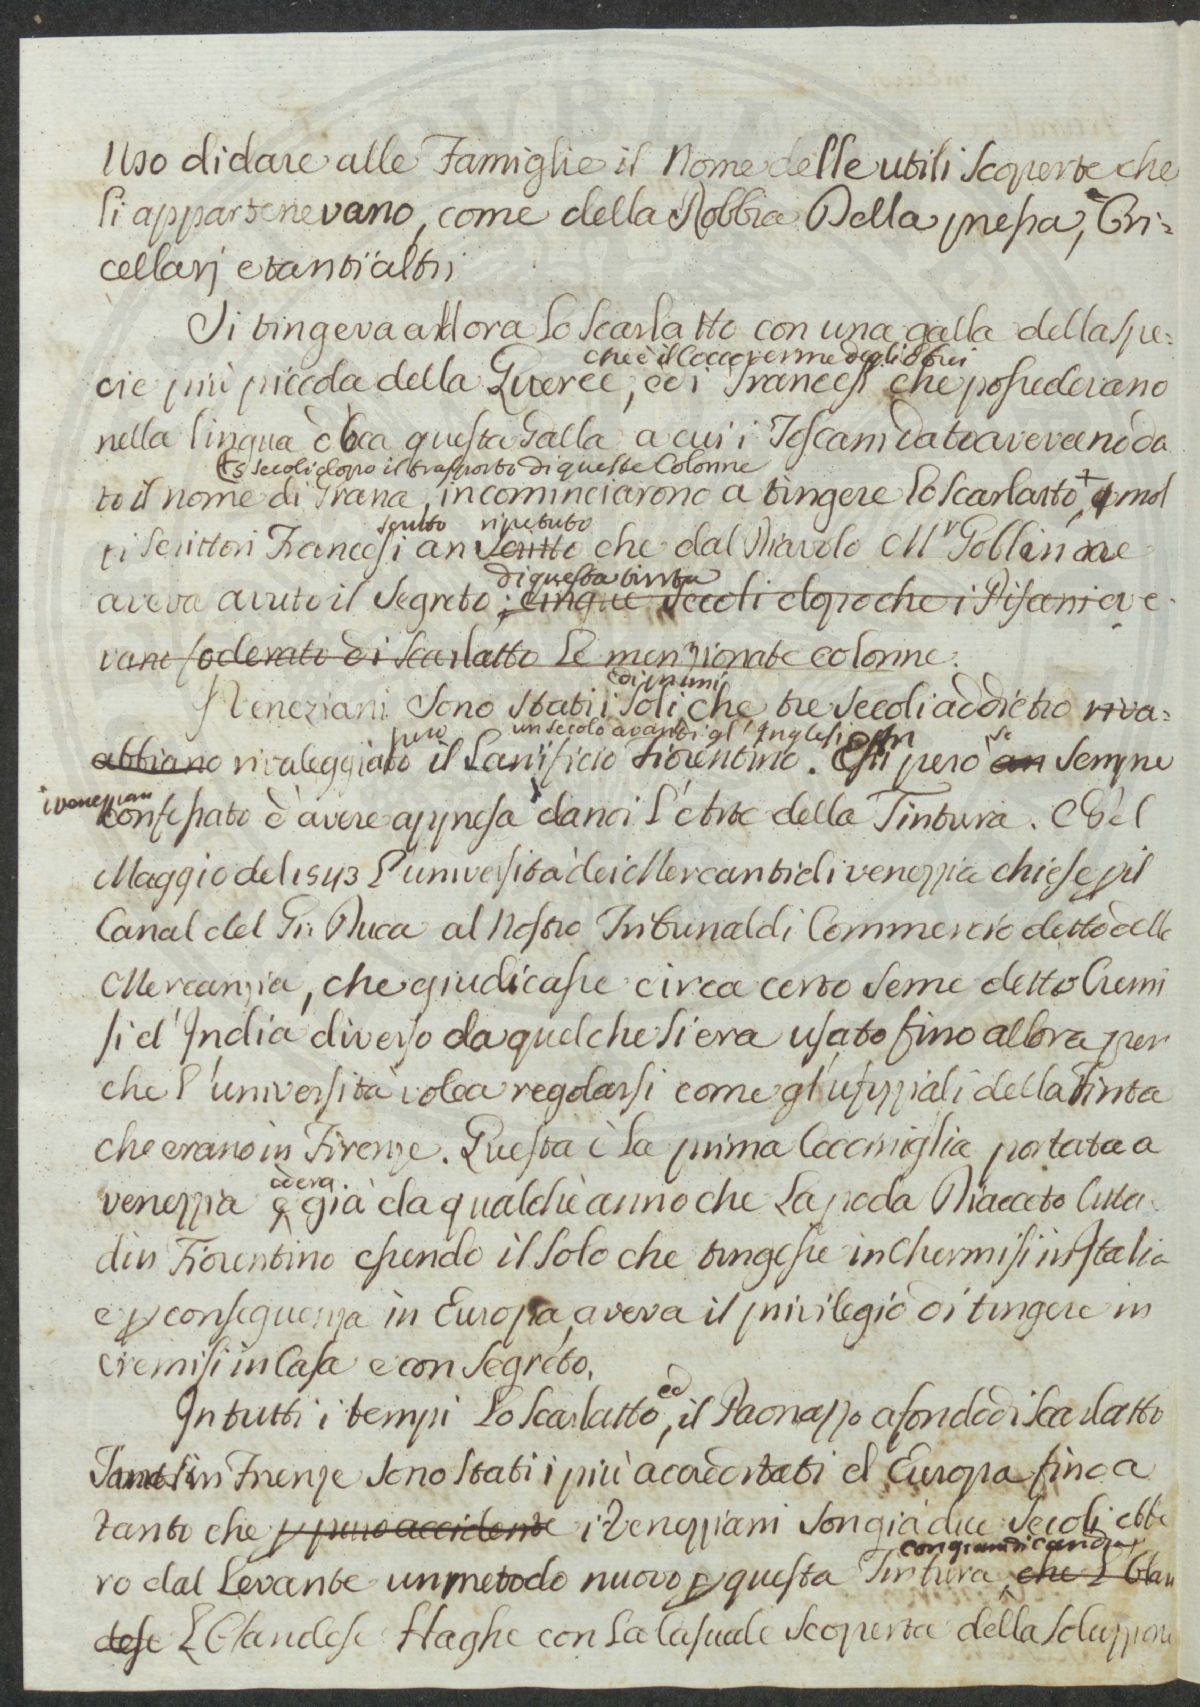 Uso di dare alle Famiglie il Nome delle utili scoperte che
li appartenevano, come della Robbia Della pressa, Ori=
cellarj e tanti altri
Si tingeva allora lo scarlatto con una galla della spe=
che è il Cocco verme degli
cie più piccola della Querce, ed i Francesi che possedevano
nella lingua d'Oca questa Galla a cui i Toscani dato avevano da
5 secoli dopo il trasporto di queste Colonne
to il nome di Grana, incominciarono a tingere lo scarlatto, e mol
scritto ripetuto
ti Scrittori Francesi an scritto che dal Diavolo Mr Gobblin
di questa tinta
aveva avuto il segreto, cinque secoli dopo che i Pisani ave
vano foderato di scarlatto le menzionate colonne.
ed i primi
I Veneziani sono stati i soli che, tre secoli addietro riva=
però un secolo avanti gl'Inglesi
abbiano rivaleggiato il Lanificio Fiorentino. Essi però an sempre
i veneziani
confessato d'avere appresa da noi l'Arte della Tintura. Ed el
Maggio del 1543 l'università dei Mercanti di venezzia chiese p il
Canal del G: Duca al Nostro Tribunal di Commercio detto della
Mercanzia, che giudicasse circa certo seme detto Cremi
si d'India diverso da quel che si era usato fino allora per
che l'università volea regolarsi come gl'ufizziali della Tinta
che erano in Firenze. Questa è la prima Cocciniglia portata a
ed era
venezzia e già da qualche anno che Lapo da Diacceto Citta
din Fiorentino essendo il solo che tingesse in Chermisi in Italia
e p conseguenza in Europa, aveva il privilegio di tingere in
cremisi in Casa e con segreto.
ed
In tutti i tempi lo scarlatto, il Paonazzo a fondo di Scarlatto
in Firenze sono stati i più accreditati d'Europa fino a
tanto che p puro accidente i Venezziani son già due secoli ebbe
con grandi
ro dal Levante un metodo nuovo p questa Tintura, che l'Olan
dese L'Olandese Haghe con la Casuale scoperta della soluzzione